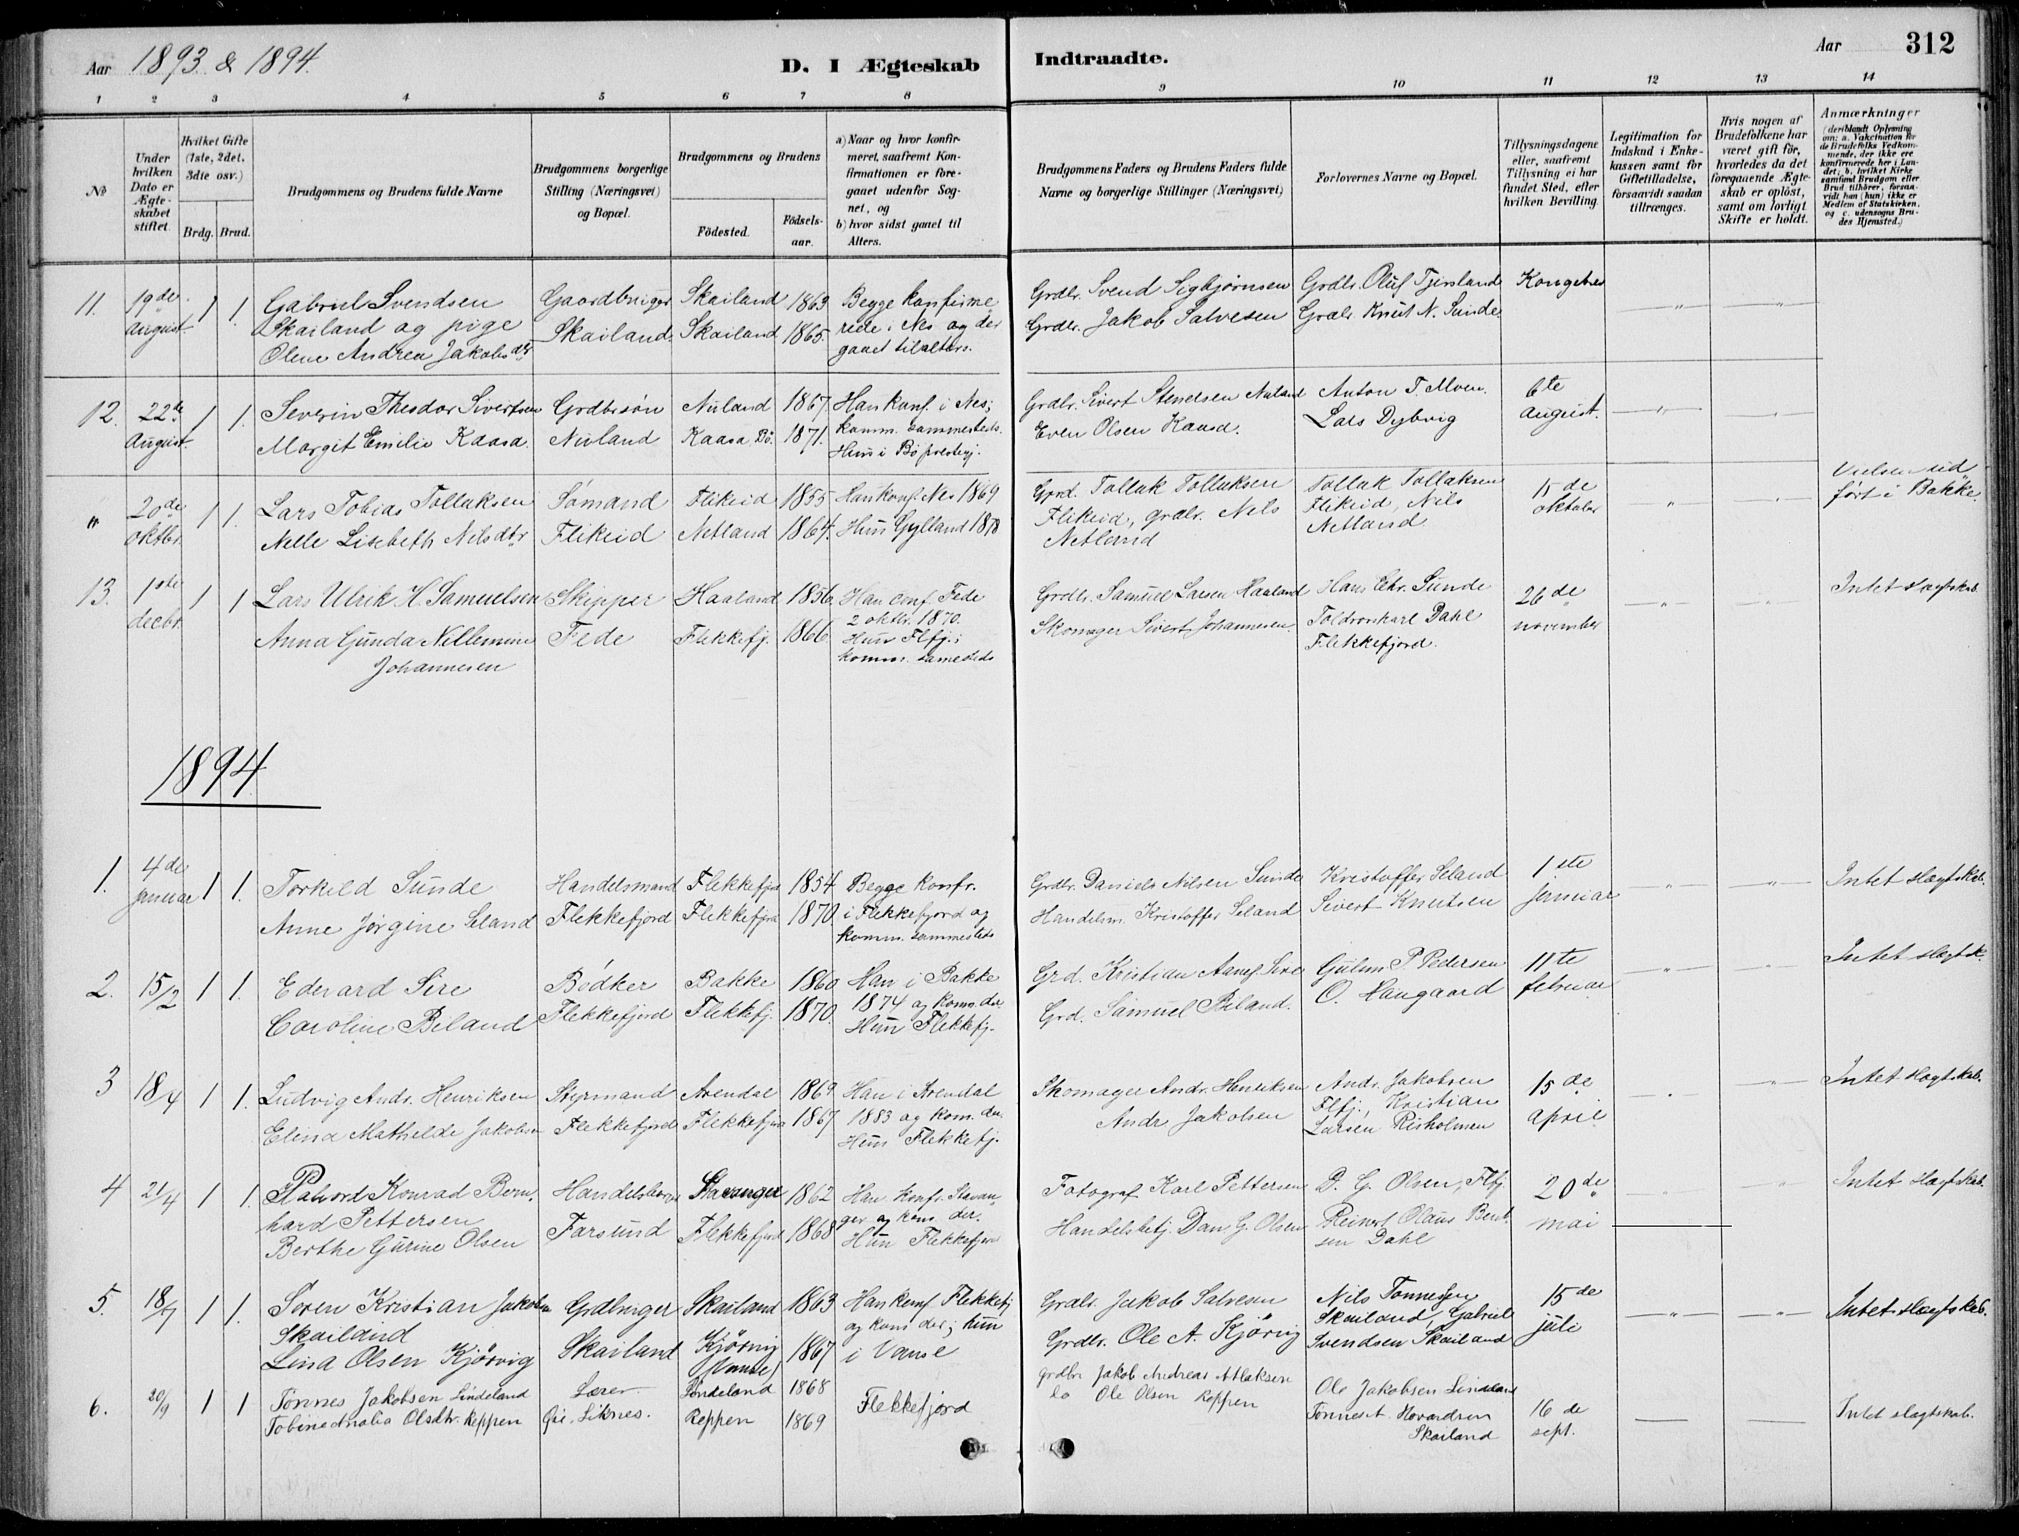 Aar 1893 & 1894.
D. I Ægteskab Indtraadte.
Aar 312
1 2 3 4 5 6 7 8 9 10 11 12 13 14
No
Under hvilken Dato er Ægteskabet stiftet.
Hvilket Gifte (1ste, 2det, 3die osv.)
Brdg. Brud.
Brudgommens og Brudens fulde Navne
Brudgommens borgerlige Stilling (Næringsvei) og Bopæl.
Brudgommens og Brudens
Födested. Födsels-aar.
a) Naar og hvor konfirmeret, saafremt Konfirmationen er foregaaet udenfor Sognet, og
b) hvor sidst gaaet til Alters.
Brudgommens Faders og Brudens Faders fulde Navne og borgerlige Stillinger (Næringsvei)
Forlovernes Navne og Bopæl.
Tillysningsdagene eller, saafremt Tillysning ei har fundet Sted, efter hvilken Bevilling.
Legitimation for Indskud i Enkekassen samt for Giftetilladelse, forsaavidt saadan tiltrænges.
Hvis nogen af Brudefolkene har været gift för, hvorledes da det foregaaende Ægteskab er oplöst, samt om lovligt Skifte er holdt.
Anmærkninger (deriblandt Oplysning om: a. Vakcination for de Brudefolks Vedkommende, der ikke ere konfirmerede her i Landet; b. hvilket Kirkesamfund Brudgom eller Brud tilhörer, forsaavidt han (hun) ikke er Medlem af Statskirken, og c. udensogns Brudes Hjemsted.)
11. 19de august. 1 1. Gabriel Svendsen Skailand og pige Olene Andrea Jakobsdtr
Gaardbruger Skailand. Skailand 1863 Skailand 1865.
Begge konfirmerede i Nes og der gaaet tilalters.
Grdbr. Svend Sigbjørnsen Grdbr. Jakob Salvesen
Grdbr. Oluf Tjersland Grdbr. Knut N. Sunde
12. 22de August. 1 1. Severin Theodor Sivertsen Margit Emilie Kaasa.
Grdbrsøn Nuland Nuland 1867. Kaasa Bø. 1871.
Han konf. i Nes; komm. sammesteds. Hun i Bø prestegj.
Grdbr. Sivert Stenelsen Nuland Even Olsen Kaasa.
Anton T. Moen. Lars Dybvig
6te august.
" 20de oktbr. 1 1. Lars Tobias Tollaksen Nelle Lisebeth Nilsdtr
Sømand Flikeid Flikeid 1855 Netland 1864.
Han konf. Nes 1869 Hun Gylland 1878
Grd. Tollak Tollaksen Flikeid, grdbr. Nels Netland
Tollak Tollaksen Flikeid, Nils Netland
15de oktober
Vielsen udført i Bakke.
13. 1ste decbr. 1 1 Lars Ulrik H. Samuelsen Anna Gunda Nellemine Johannesen
Skipper Fede Haaland 1856. Flekkefj. 1866
Han conf. Fede 2 oktbr. 1870. Hun Flfj.; komm. samesteds
Grdbr. Samuel Larsen Haaland Skomager Sivert Johannesen.
Hans Chr. Sunde Toldronkarl Dahl Flekkefjord.
26de november
Intet slagtskab.
1894
1. 4de januar 1 1. Torkild Sunde Anne Jørgine Seland
Handelsmand Flekkefjord Flekkefjord 1854. Flekkefjord 1870.
Begge konfr. i Flekkefjord og komm. sammesteds
Grdbr. Daniels Nilsen Sunde Handelsm. Kristoffer Seland
Kristoffer Seland Sivert Knutsen
1ste januar
Intet slægtskab.
2. 15/2 1 1. Edevard Sire Caroline Biland
Bødker Flekkefjord Bakke 1860. Flekkefj. 1870.
Han i Bakke 1874 og kom. der Hun Flekkefj.
Grd. Kristian Aanes. Sire Grd. Samuel Biland.
Gulum P. Pedersen O. Haugaard
11te februar
Intet slægtsk.
3 18/4 1 1. Ludvig Andr. Henriksen Elina Mathilde Jakobsen
Styrmand Flekkefjord Arendal 1869 Flekkefjord 1867
Han i Arendal 1883 og kom. der. Hun Flekkefj.
Skomager Andr. Henriksen Andr Jakobsen
Andr. Jakobsen Flfj., Kristian Larsen Risholmen
15de april
Intet slægtskab.
4 21/4 1 1. Konrad Bernhard Pettersen Berthe Gurine Olsen
Farsund Stavanger 1862 Flekkefjord 1868
Han konfr. Stavanger og kom. der. Hun Flekkefjord
Fotograf Karl Pettersen Handelsbetj. Dan G. Olsen
D. G. Olsen, Flfj. Reinert Olaus Berntsen Dahl
20de mai
Intet slægtskab.
5. 18/7 1 1. Søren Kristian Jakobsen Skailand Lina Olsen Kjørvig
Grdbruger Skailand Skailand 1863 Kjørvig (Vanse) 1867
Han konf. Flekkefj og kom der; hun i Vanse
Grdbr. Jakob Salvesen Grdbr. Ole A. Kjörvig
Nils Tønnesen Skailand, Gabriel Svendsen Skailand
15de juli
Intet slægtskab.
6. 20/9 1 1 Tønnes Jakobsen Lindeland Tobine Amalia Olsdtr. Reppen
Lærer Liknes. Lindeland 1868 Reppen 1869
Flekkefjord
grdbr. Jakob Andreas Atlaksen do Ole Olsen Reppen
Ole Jakobsen Lindeland Tønnes A. Hovardsen Skailand
16de sept.
Intet slagtskab.